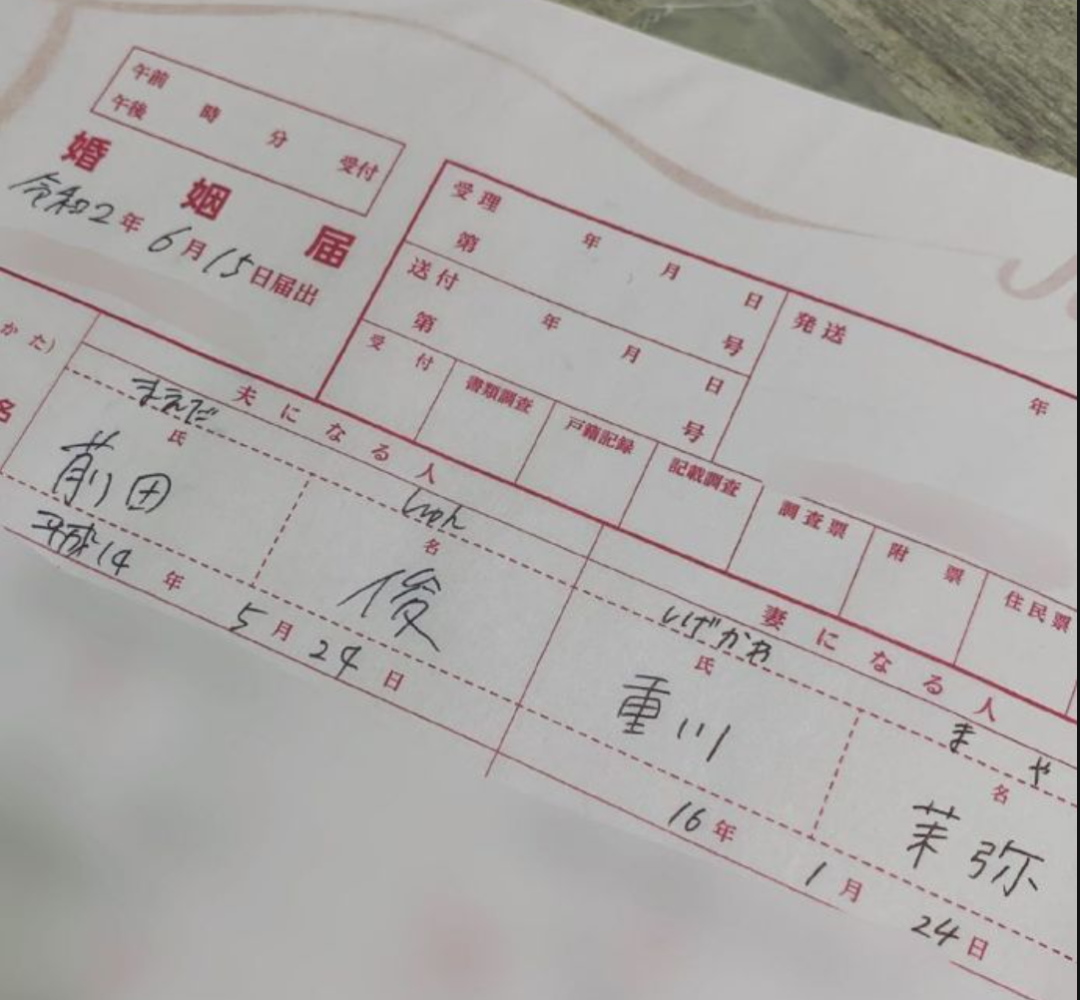 午前
午後 時 分 受付
婚姻届
令和2年6月15日届出
受理 年 月 日
第 号
送付 年 月 日
第 号
発送 年
受付 書類調査 戸籍記録 記載調査 調査票 附票 住民票
かた)
名
夫になる人
まえだ しゅん
氏 名
前田 俊
平成14年5月24日
妻になる人
しげかわ まや
氏 名
重川 茉弥
16年1月24日